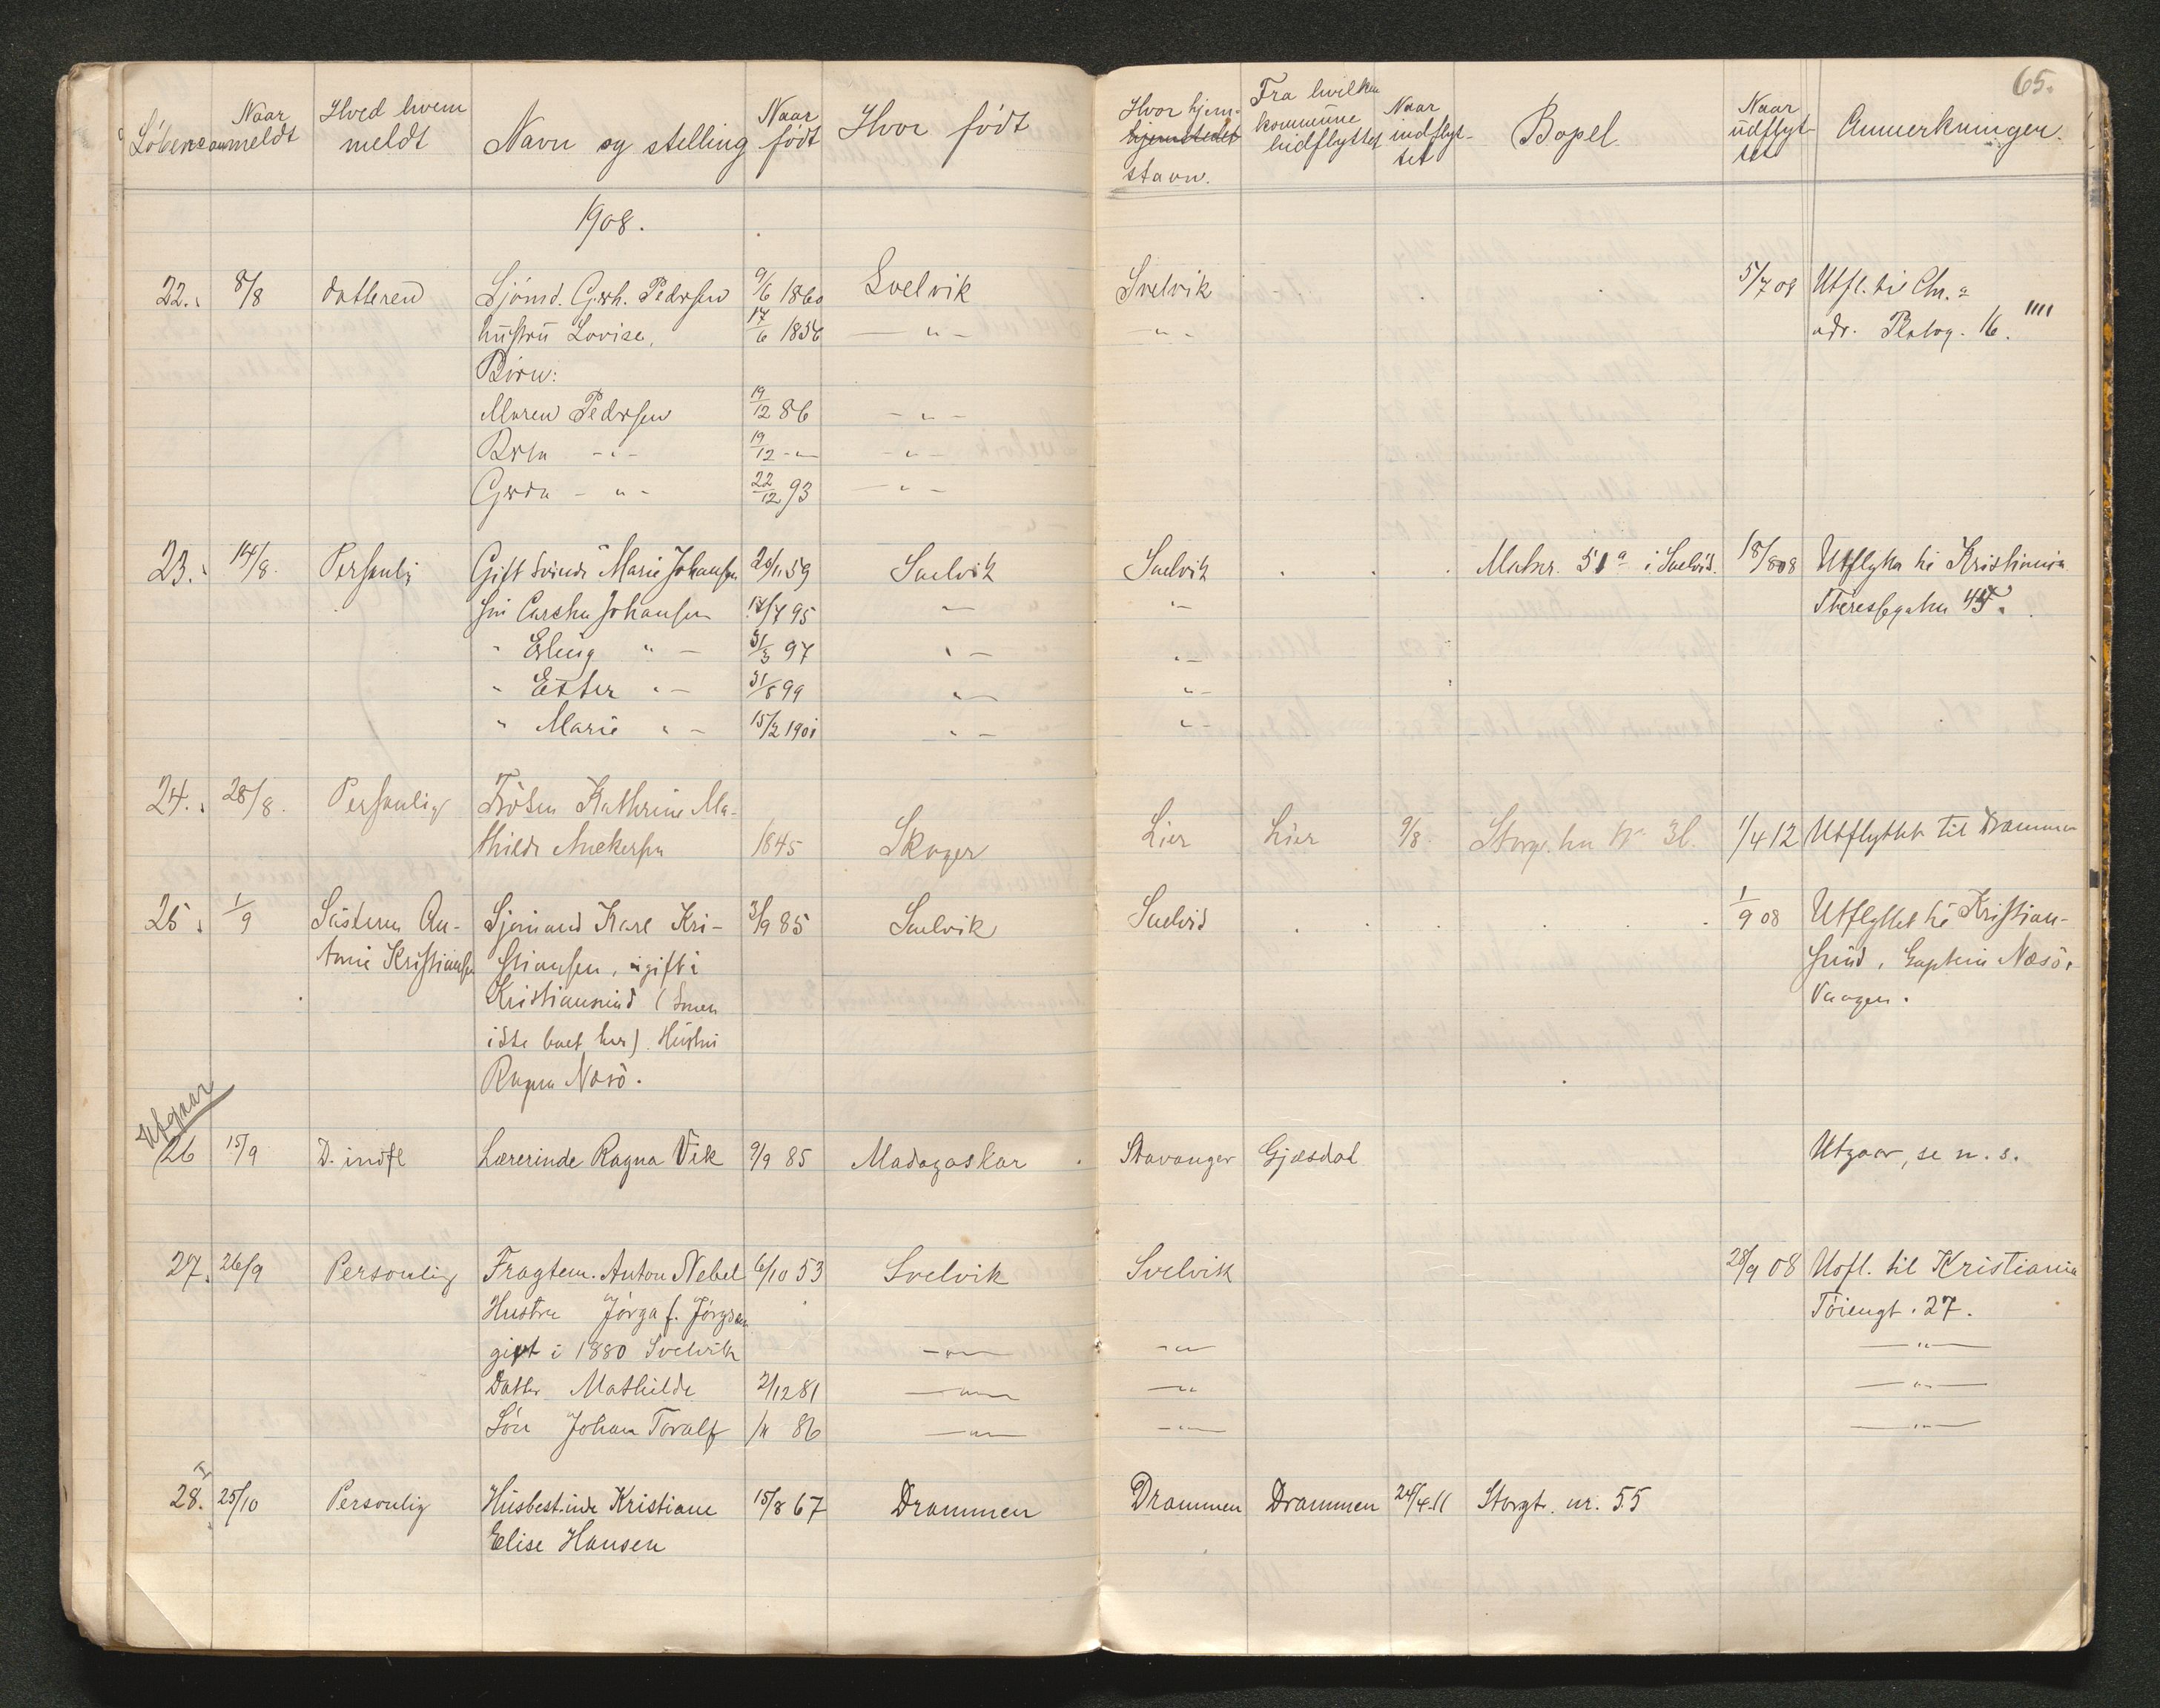 65.
Naar anmeldt
Hved hvem meldt
Navn og stilling
Naar født
Hvor født
Hvor hjem-
stavn.
Fra hvilken kommune hidflyttet
Naar indflyt-
tet
Bopel
Naar udflyt-
tet
Anmerkninger.
1908.
22. 8/8 datteren Sjømd. Gerh. Pedersen 9/6 1860 Svelvik Svelvik 5/7 08 Utfl. til Chr.a
hustru Lovise, 17/6 1856 — " — " - adr. 16. """
Børn:
Maren Pedersen 19/12 86 - " -
- " - 19/12 - " - - " -
Gerda - " - 22/12 93 - " -
23. 14/8 Personlig Gift kvinde Marie Johansen 59 Svelvik Svelvik Matnr. 51a i Svelvik. 18/8 08 Utflyttet til Kristiania
Johansen 17/7 95 " - " - Theresesgaten
" Erling " - 31/3 97 " - " -
" Ester " - 31/8 99 " - " -
" Marie " - 15/2 1901 " - " -
24. 28/8. Personlig Frøken Kathrine Ma-
thilde Ankersen 1845 Skoger Lier Lier 9/8. No 1/4 12 Utflyttet til Drammen
25. 1/9 Søsteren An-
tonie Kristiansen
Sjømand Karl Kri-
stiansen, gift i
Kristiansund (
ikke boet her). Hustru
Ragna Næsø.
3/9 85 Svelvik Svelvik 1/9 08 Utflyttet til Kristian-
sund, Næsø,
Vaagen.
Utgaar
26 15/9 D. indfl Lærerinde Ragna Vik 9/9 85 Madagaskar Stavanger Gjæsdal Utgaar, se n. s.
27. 26/9 Personlig Fragtem. Anton Nebel 6/10 53 Svelvik Svelvik 28/9 08 Utfl. til Kristiania
Hustru Jørga f. Jørgsen Tøiengt. 27.
gift i 1880 Svelvik - " - - " - - " -
Datter Mathilde 2/12 81 - " - - " - - " -
Søn Johan Toralf 86 - " - - " - - " -
28. 25/10 Personlig Husbest.inde Kristiane 15/8 67 Drammen Drammen Drammen 24/4-11 Storgt. nr. 55
Elise Hansen